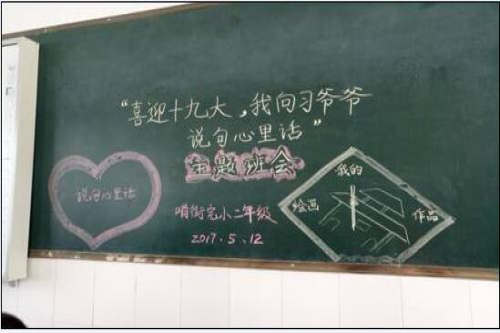 “喜迎十九大，我向习爷爷
说句心里话”
主题班会
说句心里话
哨街完小二年级
2017.5.12
我的
绘画
作品